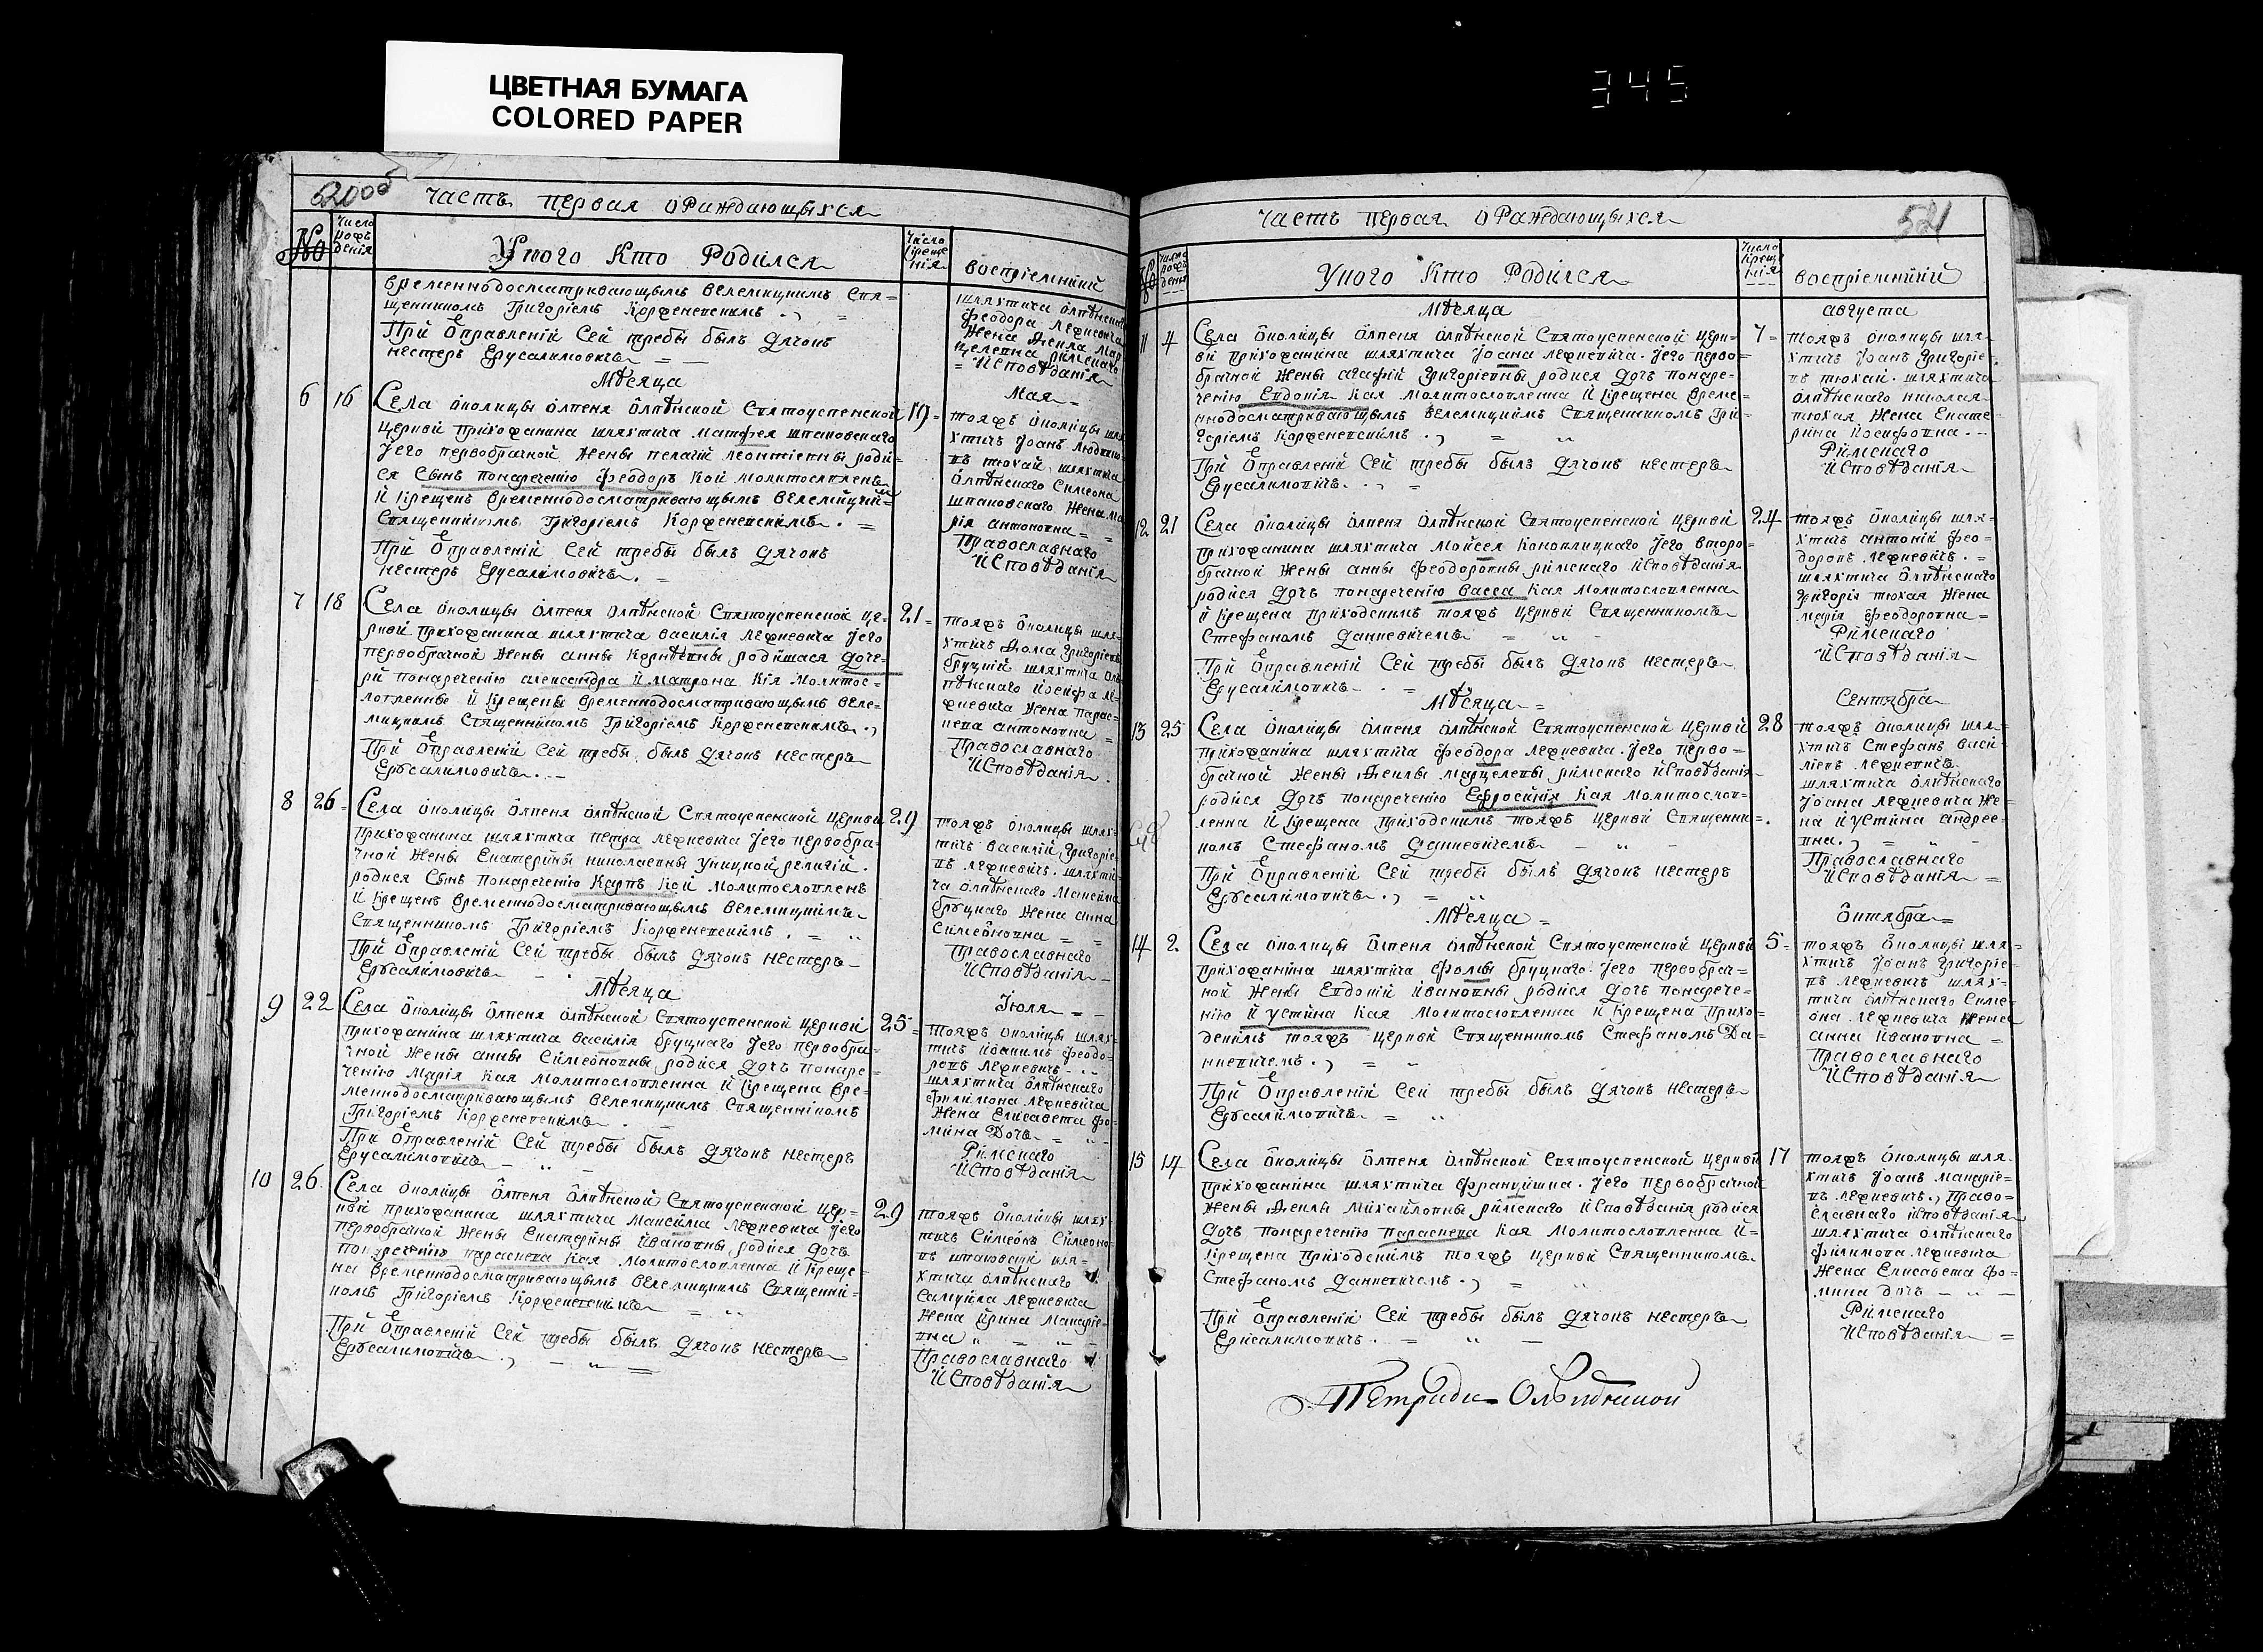 ЦВЕТНАЯ БУМАГА
COLORED PAPER
345
520об
часть первая ораждающыхся
№
Число рождения
Укого Кто Родился
Число крещения
воспріемникй
временнодосматривающымъ велемицкимъ Свя=
щенникомъ Григоріемъ Корженевскимъ.
При Ѿправленій Сей требы былъ дячокъ
нестеръ Ерусалимовичъ
шляхтича
феодора Лехневича
Жена
Исповѣданія
Мѣсяца
Мая
6
16
Села околицы олпеня олпѣнской Святоуспенской
Церкви прихожанина шляхтича матфея шпаковскаго
Jего первобрачной жены пелагій леонтіевны роди=
ся Сынъ понареченію феодоръ Кой молитвословленъ
й Крещенъ временнодосматривающымъ велемицкй=
Священникомъ Григоріемъ Корженевскимъ.
При Ѿправленій Сей требы былъ дячокъ
нестеръ Ерусалимовичъ.
19
тояжъ околицы шля
хтичъ Jоанъ
въ тюхай шляхтича
олпѣнскаго Симеона
шпаковскаго Жена ма
рія антоновна
Православнаго
ЙСповѣданія
7
18
Села околицы олпеня олпѣнской Святоуспенской це=
ркви прихожанина шляхтича василія лехневича Jего
первобрачной жены анны Корнѣевны родишася доче=
ри понареченію александра й матрона Кія молитвос=
ловленны й Крещены временнодосматривающымъ веле=
мицкимъ Священникомъ Григоріемъ Корженевскимъ.
При Ѿправленій Сей требы былъ дячокъ нестеръ
Ерусалимовичъ.
21
тояжъ околицы шля=
хтичъ Ѳома Григоріевъ
бруцкій шляхтича ол
пѣнскаго Йосифа ле=
хневича Жена парас=
кева антоновна
Православнаго
ЙСповѣданія
8
26
Села околицы олпеня олпѣнской Святоуспенской Церкви
прихожанина шляхтича петра лехневича Jего первобра=
чной жены Екатерины николаевны уницкой религій.
родися Сынъ понареченію Карпъ Кой молитвословленъ
й Крещенъ временнодосматривающымъ велемицкимъ
Священникомъ Григоріемъ Корженевскимъ.
При Ѿправленій Сей требы былъ дячокъ нестеръ
Ерусалимовичъ
29
тояжъ околицы шлях=
тичъ василій Григоріе=
въ лехневичъ. шляхти=
ча олпѣнскаго максима
бруцкаго Жена анна
Симеоновна
Православнаго
ЙСповѣданія
Мѣсяца
Jюля
9
22
Села околицы олпеня олпѣнской Святоуспенской Церкви
прихожанина шляхтича василія бруцкаго Jего первобра=
чной жены анны Симеоновны родися дочъ понаре=
ченію Марія Кая молитвословленна й Крещена вре=
меннодосматривающымъ велемицкимъ Священникомъ
Григоріемъ Корженевскимъ
При Ѿправленій Сей требы былъ дячокъ нестеръ
Ерусалимовичъ
25
тояжъ околицы шлях=
тичъ феодо=
ровъ лехневичъ
шляхтича олпѣнскаго
филимона лехневича
Жена Елисавета фо=
мина Дочъ
Римскаго
ЙСповѣданія
10
26
Села околицы олпеня олпѣнской Святоуспенской цер=
кви прихожанина шляхтича максима лехневича Jего
первобрачной жены Екатерины йвановны родися дочъ
понареченію параскева Кая молитвословленна й Креще=
на временнодосматривающымъ велемицкимъ Священни=
комъ Григоріемъ Корженевскимъ
При Ѿправленій Сей требы былъ дячокъ нестеръ
Ерусалимовичъ.
29
тояжъ околицы шлях=
тичъ Симеонъ Симеоно=
въ шпаковскій шля=
хтича олпѣнскаго
Самуйла лехневича
Жена йрина макаріе=
вна
Православнаго
ЙСповѣданія
521
часть первая ораждающыхся
№
Число рождения
Укого Кто Родился
Число крещения
воспріемникій
Мѣсяца
августа
11
4
Села околицы олпеня олпѣнской Святоуспенской Церк=
вй прихожанина шляхтича Jоана лехневича. Jего перво=
брачной жены агафій Григоріевны родися дочъ понаре=
ченію Евдокія Кая молитвословленна й Крещена време=
ннодосматривающымъ велемицкимъ Священникомъ Гри=
горіемъ Корженевскимъ.
При Ѿправленій Сей требы былъ дячокъ нестеръ
Ерусалимовичъ.
7
тояжъ околицы шля=
хтичъ Jоанъ Григоріе=
въ тюхай. шляхтича
олпѣнскаго николая
тюхая Жена Екате=
рина Йосифовна.
Римскаго
ЙСповѣданія
12
21
Села околицы олпеня олпѣнской Святоуспенской Церкви
прихожанина шляхтича Мойсея Коноплицкаго Jего второ=
брачной жены анны феодоровны римскаго йсповѣданія
родися дочъ понареченію васса Кая молитвословленна
й Крещена приходскимъ тояжъ Церкви Священникомъ
Стефаномъ Данкевичемъ
При Ѿправленій Сей требы былъ дячокъ нестеръ
Ерусалимовичъ
24
тояжъ околицы шля=
хтичъ антоній фео=
доровъ лехневичъ.
шляхтича олпѣнскаго
григорія тюхая Жена
марія феодоровна
Римскаго
ЙСповѣданія
Мѣсяца
Сентября
13
25
Села околицы олпеня олпѣнской Святоуспенской Церкви
прихожанина шляхтича феодора лехневича. Jего перво=
брачной жены Ѳеклы марцелевы римскаго йсповѣданія
родися дочъ понареченію Ефросинія Кая молитвослов=
ленна й Крещена приходскимъ тояжъ Церкви Священни=
комъ Стефаномъ Данкевичемъ
При Ѿправленій Сей требы былъ дячокъ нестеръ
Ерусалимовичъ.
28
тояжъ околицы шля=
хтичъ Стефанъ васи=
ліевъ лехневичъ
шляхтича олпѣнскаго
Jоана лехневича Же=
на йустина андрее=
вна.
Православнаго
ЙСповѣданія
Мѣсяца
Октября
14
2
Села околицы олпеня олпѣнской Святоуспенской Церкви
прихожанина шляхтича фомы бруцкаго. Jего первобрач=
ной жены Евдокій йвановны родися дочъ понарече=
нію йустина Кая молитвословленна й Крещена прихо=
дскимъ тояжъ Церкви Священникомъ Стефаномъ Да=
нкевичемъ.
При Ѿправленій Сей требы былъ дячокъ нестеръ
Ерусалимовичъ
5
тояжъ околицы шля=
хтичъ Jоанъ Григоріе=
въ лехневичъ шлях=
тича олпѣнскаго Симе=
она лехневича Жена
анна йвановна
Православнаго
ЙСповѣданія
15
14
Села околицы олпеня олпѣнской Святоуспенской Церкви
прихожанина шляхтича Jего первобрачной
жены Ѳеклы михайловны римскаго йсповѣданія родися
дочъ понареченію параскева Кая молитвословленна й=
Крещена приходскимъ тояжъ Церкви Священникомъ
Стефаномъ Данкевичемъ.
При Ѿправленій Сей требы былъ дячокъ нестеръ
Ерисалимовичъ.
17
тояжъ околицы шля
хтичъ Jоанъ макаріе=
въ лехневичъ, право=
славнаго йсповѣданія
шляхтича олпѣнскаго
филимона лехневича
Жена Елисавета фо=
мина дочъ
Римскаго
ЙСповѣданія